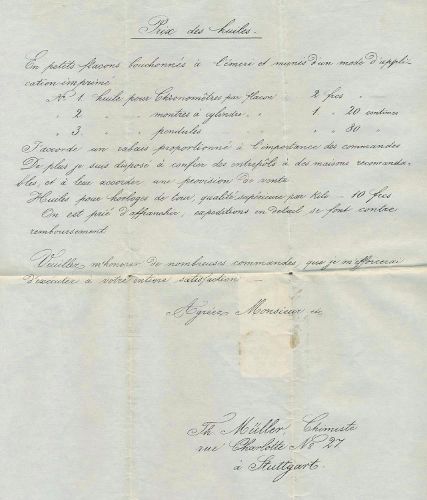 Prix des huiles.
En petits flacons bouchonnés à l'émeri et munis d'un mode d'appli-
cation imprimé
No. 1. huile pour Chronomètres par flacon 2 frcs „
„ 2. „ „ montres à cylindre „ „ 1 „ 20 centimes
„ 3. „ „ pendules „ „ 80 „
J'accorde un rabais proportionné à l'importance des commandes
De plus je suis disposé à confier des entrepôts à des maisons recommanda-
bles, et à leur accorder une provision de vente
Huiles pour horloges de tour, qualité supérieure par Kilo — 10 frcs
On est prié d'affranchir, expeditions en detail se font contre
remboursement.
Veuillez m'honorer de nombreuses commandes, que je m'efforcerai
d'executer à votre entière satisfaction.
Agréez Monsieur etc
Th. Müller, Chimiste
rue Charlotte No 27
à Stuttgart.